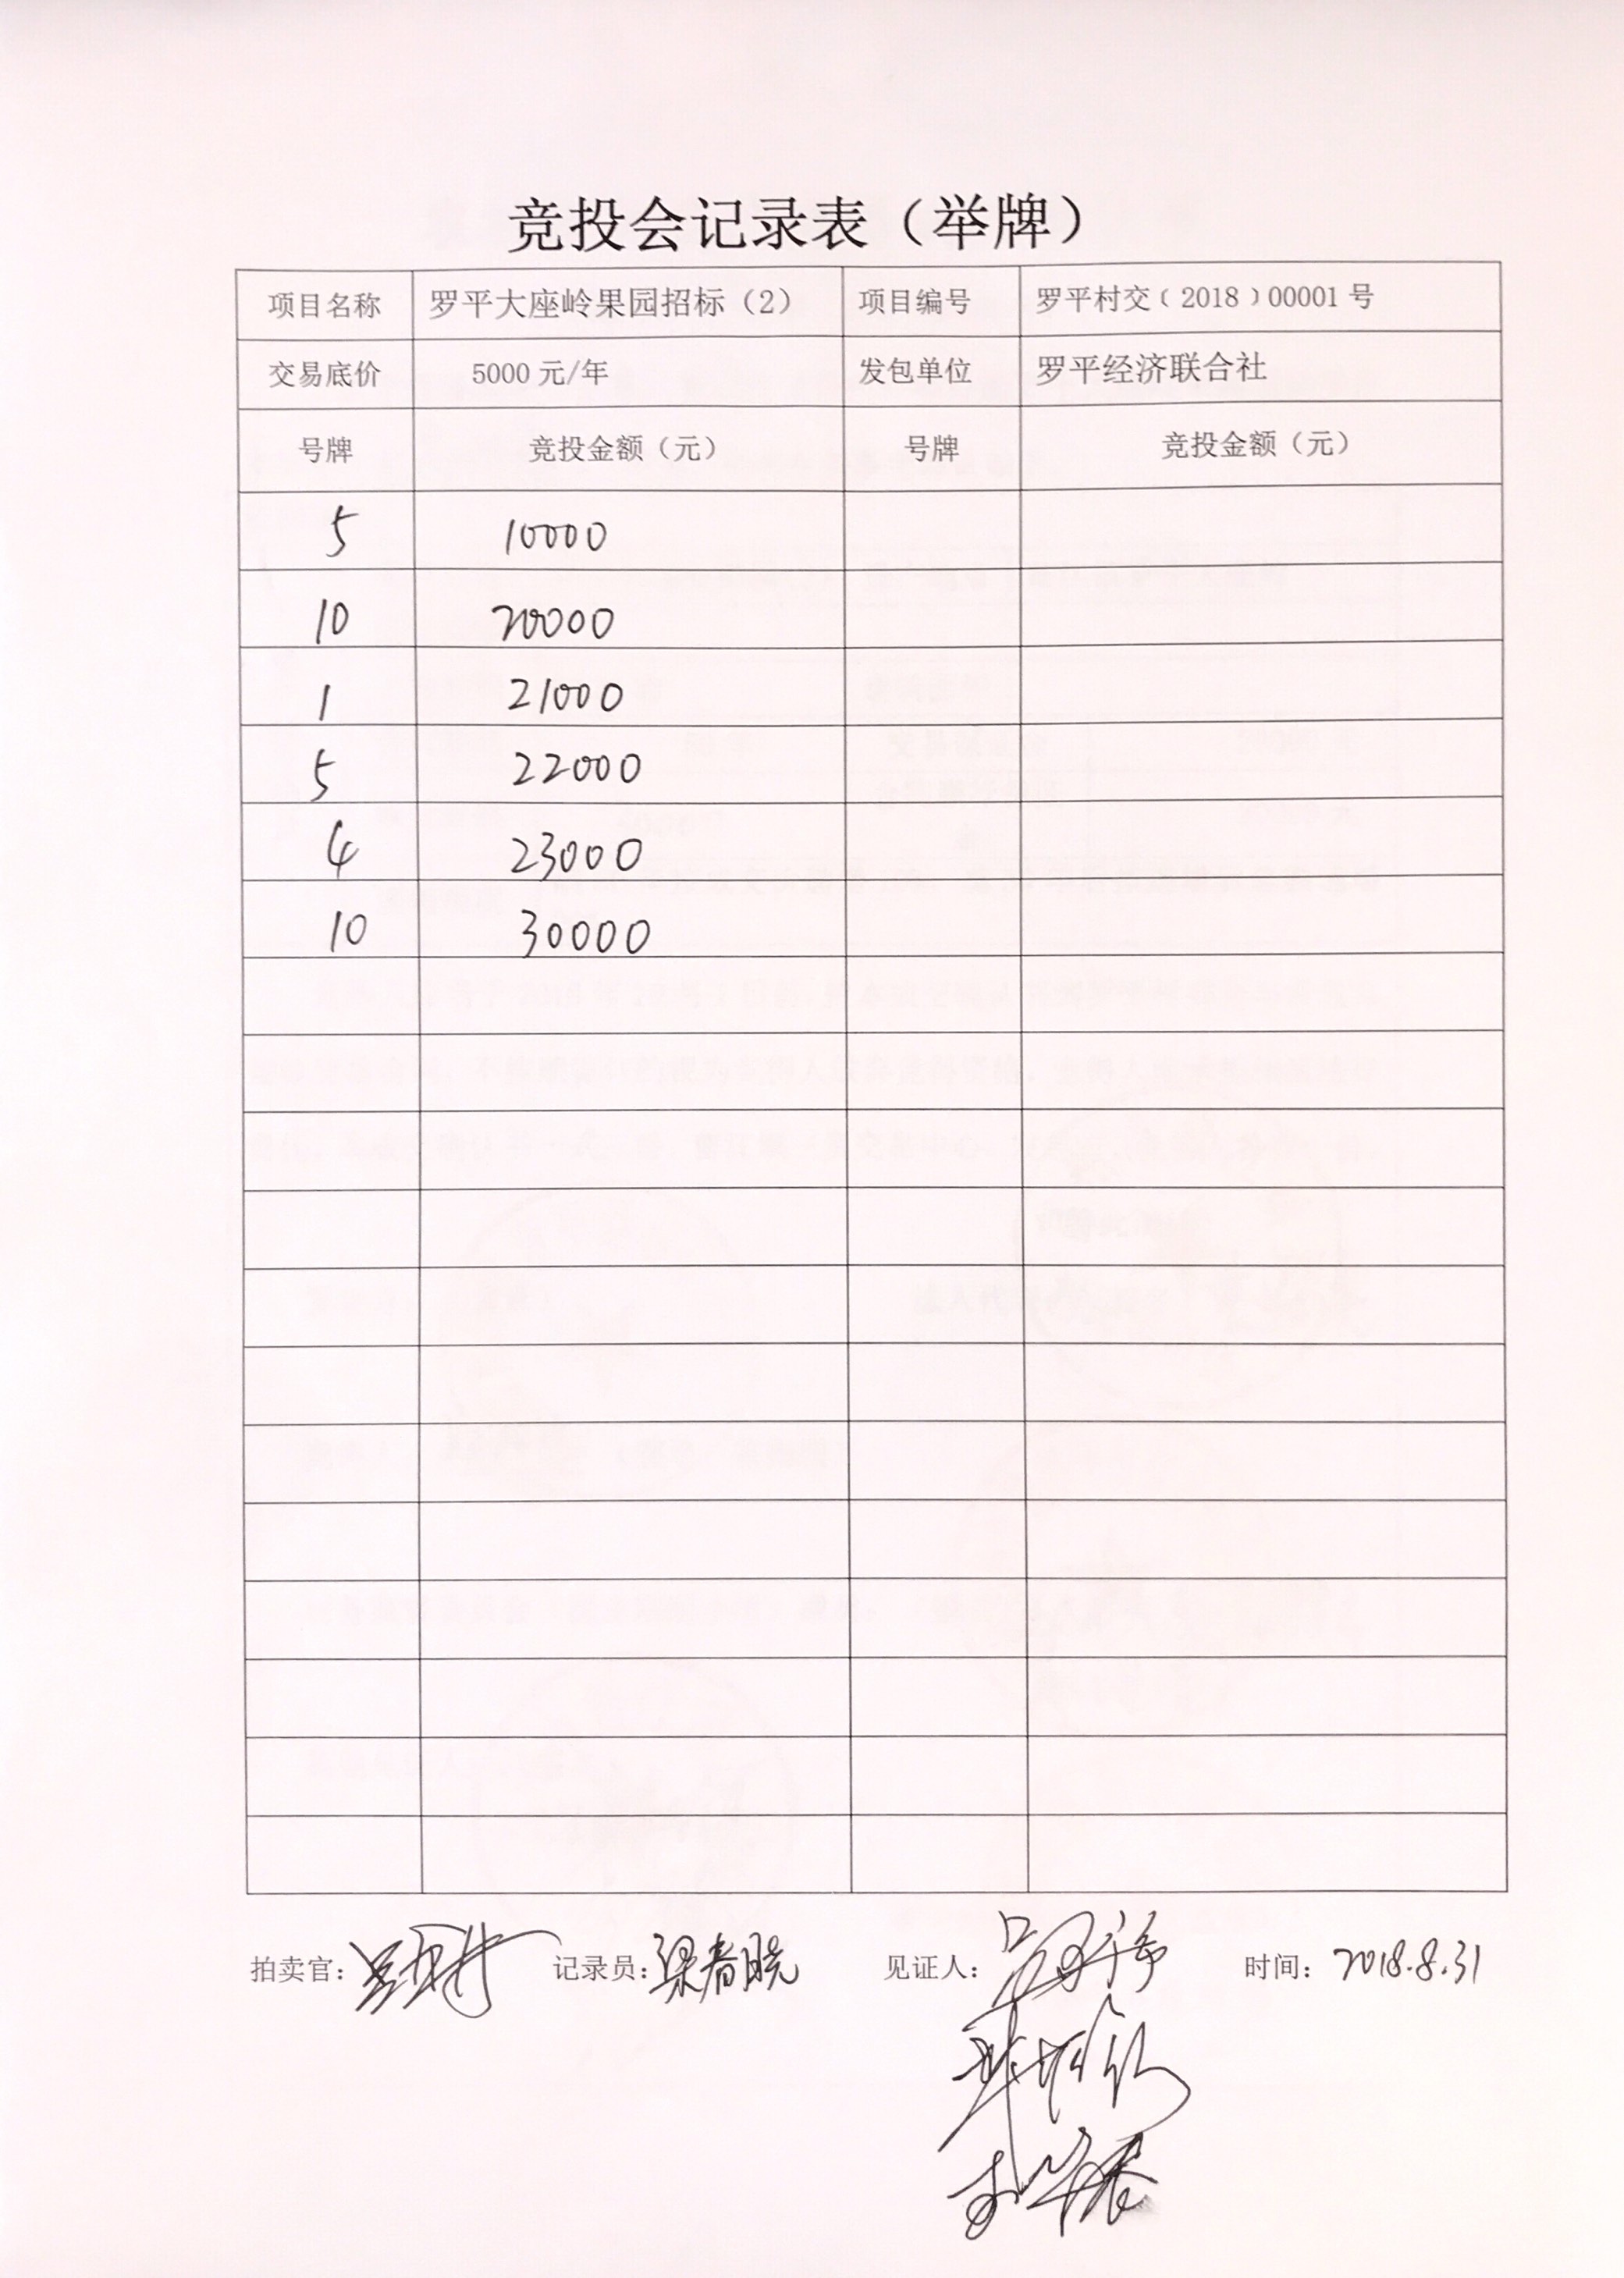 竞投会记录表（举牌）
项目名称 罗平大座岭果园招标（2） 项目编号 罗平村交﹝2018﹞00001 号
交易底价 5000 元/年 发包单位 罗平经济联合社
号牌 竞投金额（元） 号牌 竞投金额（元）
5 10000
10 20000
1 21000
5 22000
4 23000
10 30000
拍卖官： 记录员：梁春晓 见证人： 时间：2018.8.31